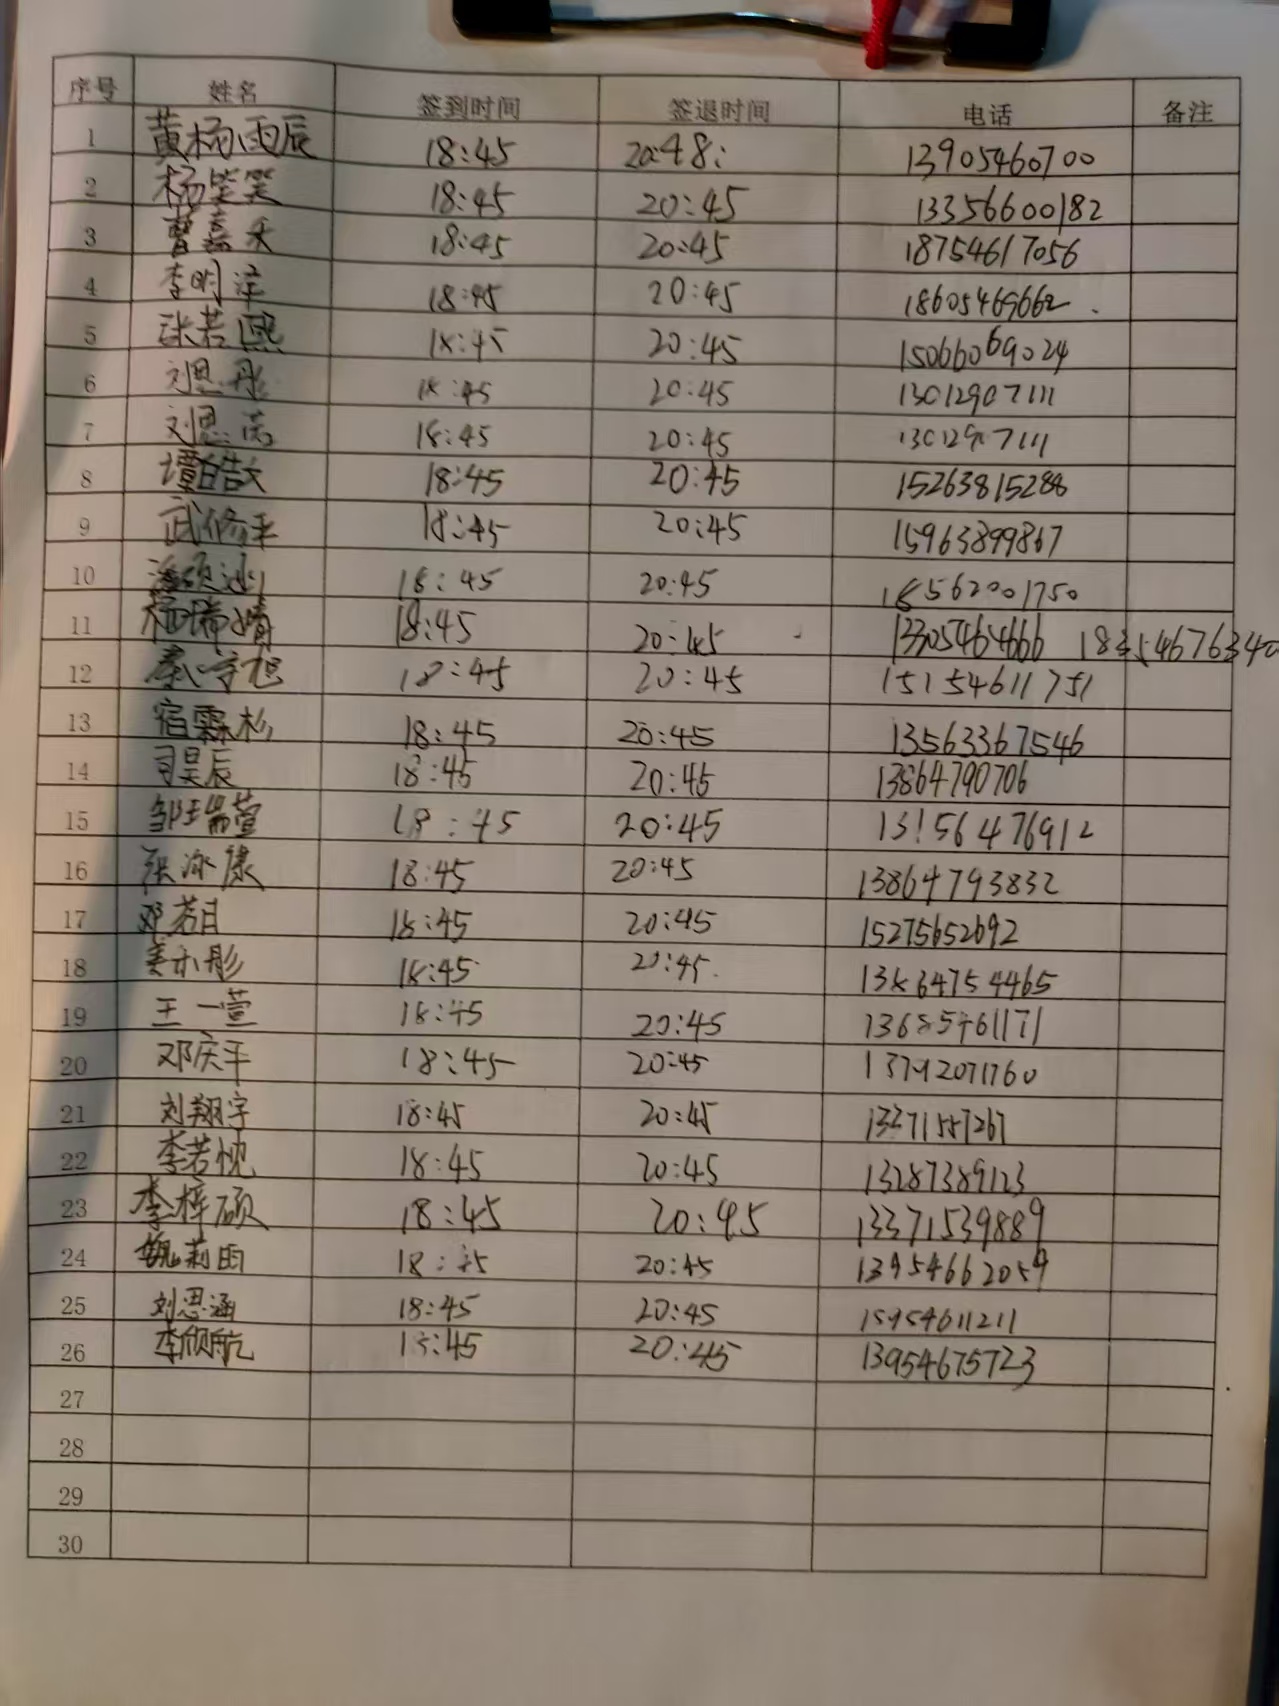 序号 姓名 签到时间 签退时间 电话 备注
1 黄杨雨辰 18:45 20:48: 13905460700
2 杨笑笑 18:45 20:45 13356600182
3 曹嘉禾 18:45 20:45 18754617056
4 李明泽 18:45 20:45 18605469662
5 张若熙 18:45 20:45 15066069024
6 刘思彤 18:45 20:45 13012907111
7 刘思 18:45 20:45
8 18:45 20:45 15263815288
9 武修平 18:45 20:45 15963899867
10 18:45 20:45 18562001750
11 杨瑞婧 18:45 20:45 13305464666
12 18:45 20:45 15154611751
13 宿霖杉 18:45 20:45 13563367546
14 司昊辰 18:45 20:45 13864790706
15 邹瑞萱 18:45 20:45 13156476912
16 张冰康 18:45 20:45 13864793832
17 邓若日 18:45 20:45 15275652692
18 姜小彤 18:45 20:45 13864754465
19 王一萱 18:45 20:45 13685461171
20 邓庆平 18:45 20:45 13792071760
21 刘翔宇 18:45 20:45 13371557267
22 李若悦 18:45 20:45 13287389123
23 李梓硕 18:45 20:45 13371539889
24 魏莉雨 18:45 20:45 13954662059
25 刘思涵 18:45 20:45 15954611211
26 李欣航 18:45 20:45 13954675723
27
28
29
30